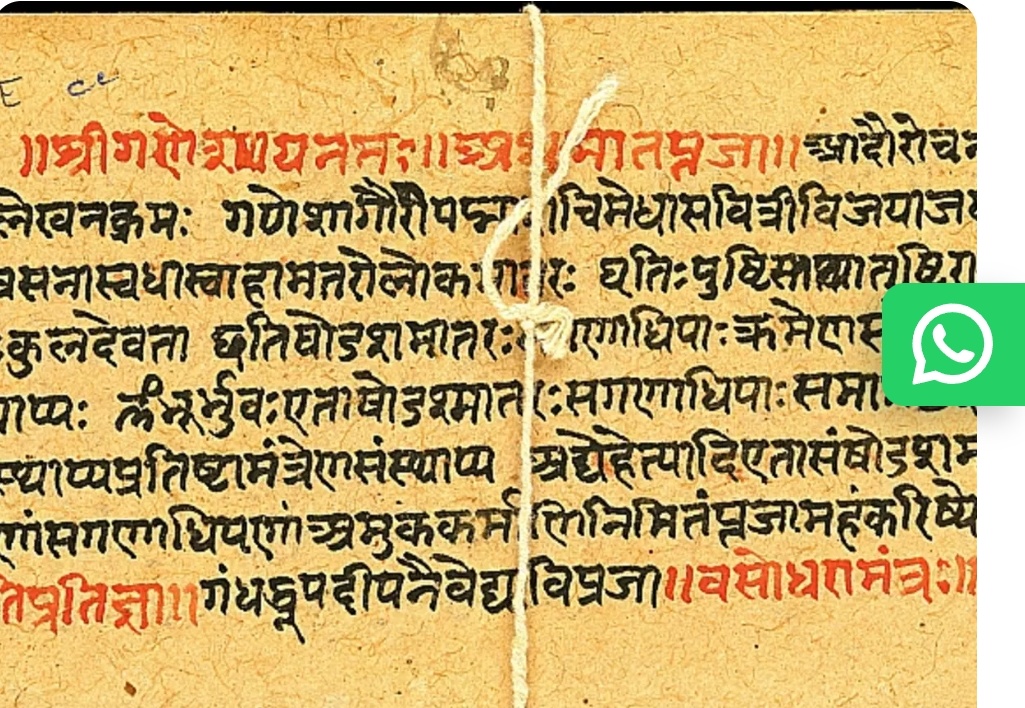 E ce
॥श्रीगणेशायनमः॥अथमातपूजा॥आदौरोचन
लेखनक्रमः गणेशगौरीपद्मा चिमेधासवित्रीविजयाजय
वसेनास्वधास्वाहामतरोलोक मातरः धृतिःपुष्टिस्तथातुष्टि
कुलदेवता इतिषोडशमातरः गणाधिपाःक्रमेण
भूर्भुवःएताषोडशमातरःसगणाधिपाः
स्थाप्यप्रतिष्टामंत्रेणसंस्थाप्य अद्येहेत्यादिएतासंषोडशम
णांसगणाधिपणांअमुककर्माणिनिमितंपूजामहंकरिष्ये
तिप्रतिज्ञा॥गंधधूपदीपनैवेद्यविपूजा॥वसोधरामंत्रः॥